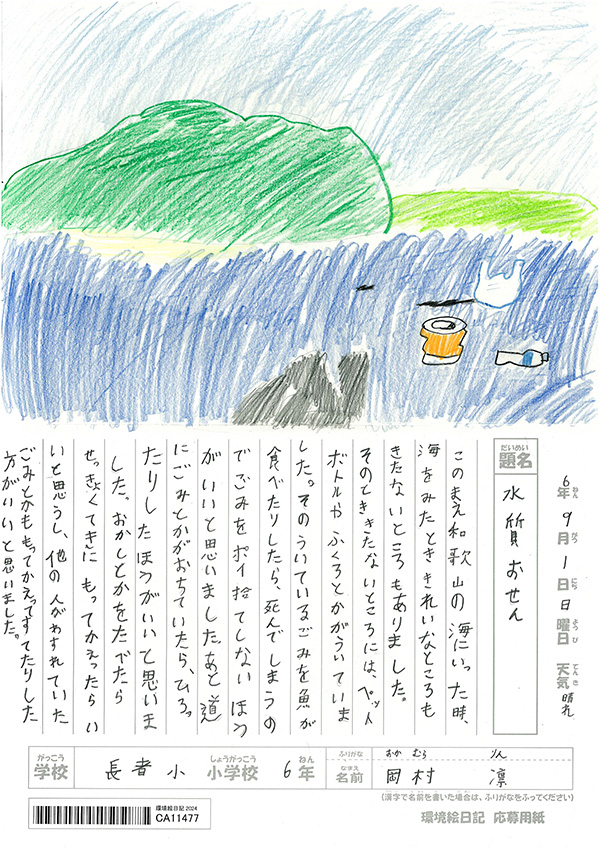 6年 9月 1日 日曜日 天気 晴れ
ねん がつ にち ようび てんき
だいめい
題名
水質おせん
このまえ和歌山の海にいった時、
海をみたとききれいなところも
きたないところもありました。
そのとききたないところには、ペット
ボトルやふくろとかがういていま
した。そのういているごみを魚が
食べたりしたら、死んでしまうの
でごみをポイ捨てしないほう
がいいと思いました。あと道
にごみとかがおちていたら、ひろっ
たりしたほうがいいと思いま
した。おかしとかをたべたら
せっきょくてきにもってかえったらい
いと思うし、他の人がわすれていた
ごみとかももってかえってすてたりした
方がいいと思いました。
がっこう しょうがっこう ねん ふりがな おか むら りん
学校 長者小 小学校 6年 なまえ 名前 岡村 凛
(漢字で名前を書いた場合は、ふりがなをふってください)
環境絵日記 2024
CA11477
環境絵日記 応募用紙